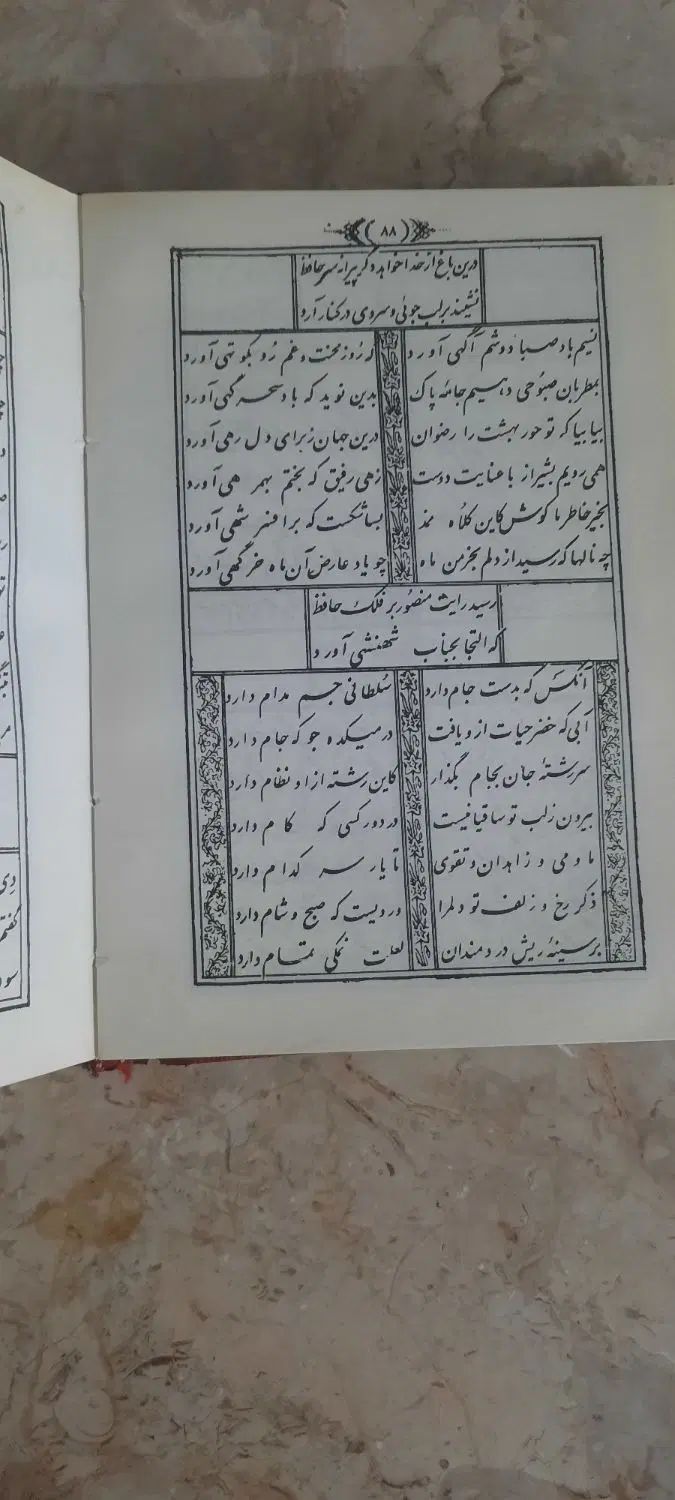 ۸۸
درین باغ از خدا خواهد دگر پیرانه سر حافظ
نشیند بر لب جوئی و سروی در کنار آرد
نسیم باد صبا دوشم آگهی آورد که روز محنت و غم رو بکوتهی آورد
بمطربان صبوحی دهیم جامه پاک بدین نوید که باد سحر گهی آورد
بیا بیا که تو حور بهشت را رضوان درین جهان ز برای دل رهی آورد
همی رویم بشیراز با عنایت دوست زهی رفیق که بختم بهمرهی آورد
بخیر خاطر ما کوش کاین کلاه نمد بسا شکست که بر افسر شهی آورد
چه نالها که رسید از دلم بخرمن ماه چو یاد عارض آن ماه خرگهی آورد
رسید رایت منصور بر فلک حافظ
که التجا بجناب شهنشهی آورد
آنکس که بدست جام دارد سلطانی جم مدام دارد
آبی که خضر حیات ازو یافت در میکده جو که جام دارد
سررشته جان بجام بگذار کاین رشته ازو نظام دارد
بیرون ز لب تو ساقیا نیست در دور کسی که کام دارد
ما و می و زاهدان و تقوی تا یار سر کدام دارد
ذکر رخ و زلف تو دلمرا وردیست که صبح و شام دارد
بر سینه ریش دردمندان لعلت نمکی تمام دارد
دی
گفتم